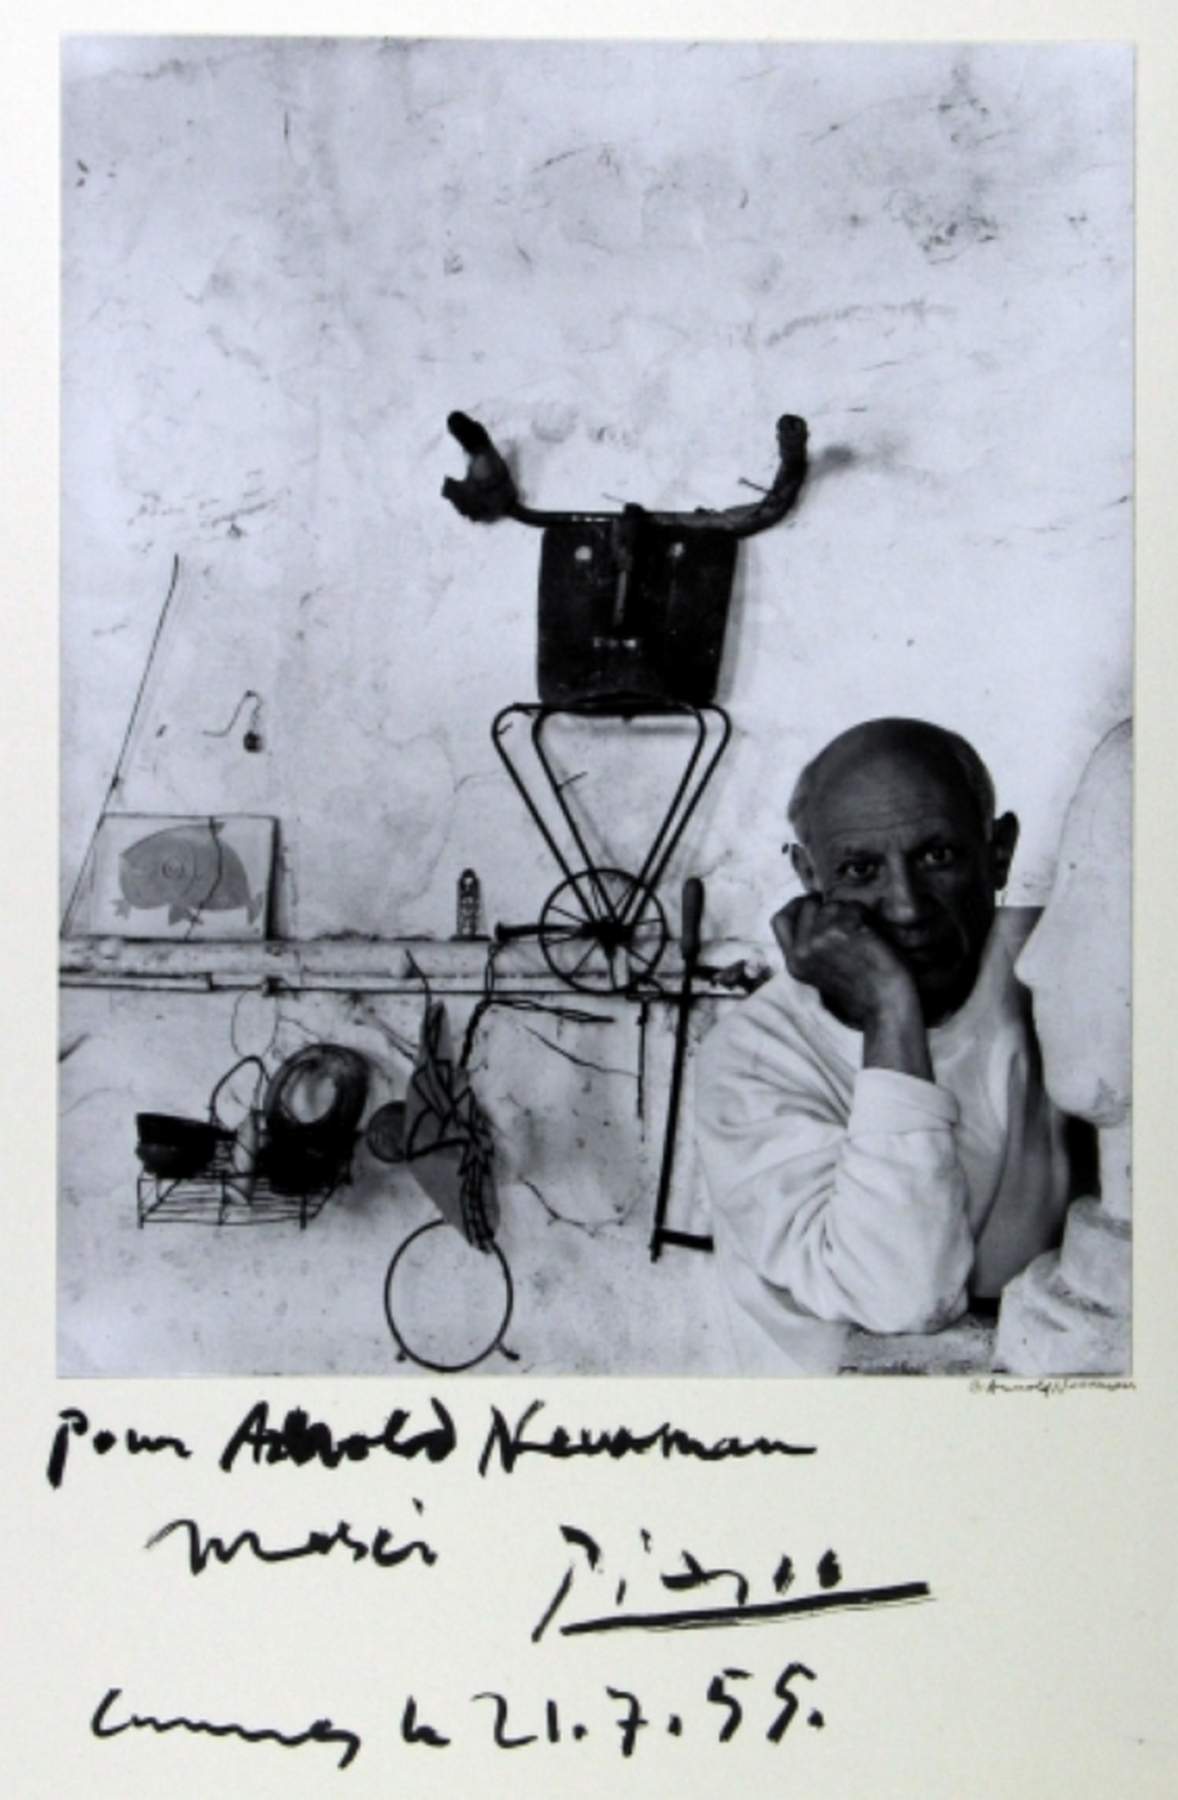 © Arnold Newman
Pour Arnold Newman
merci Picasso
Cannes le 21.7.55.